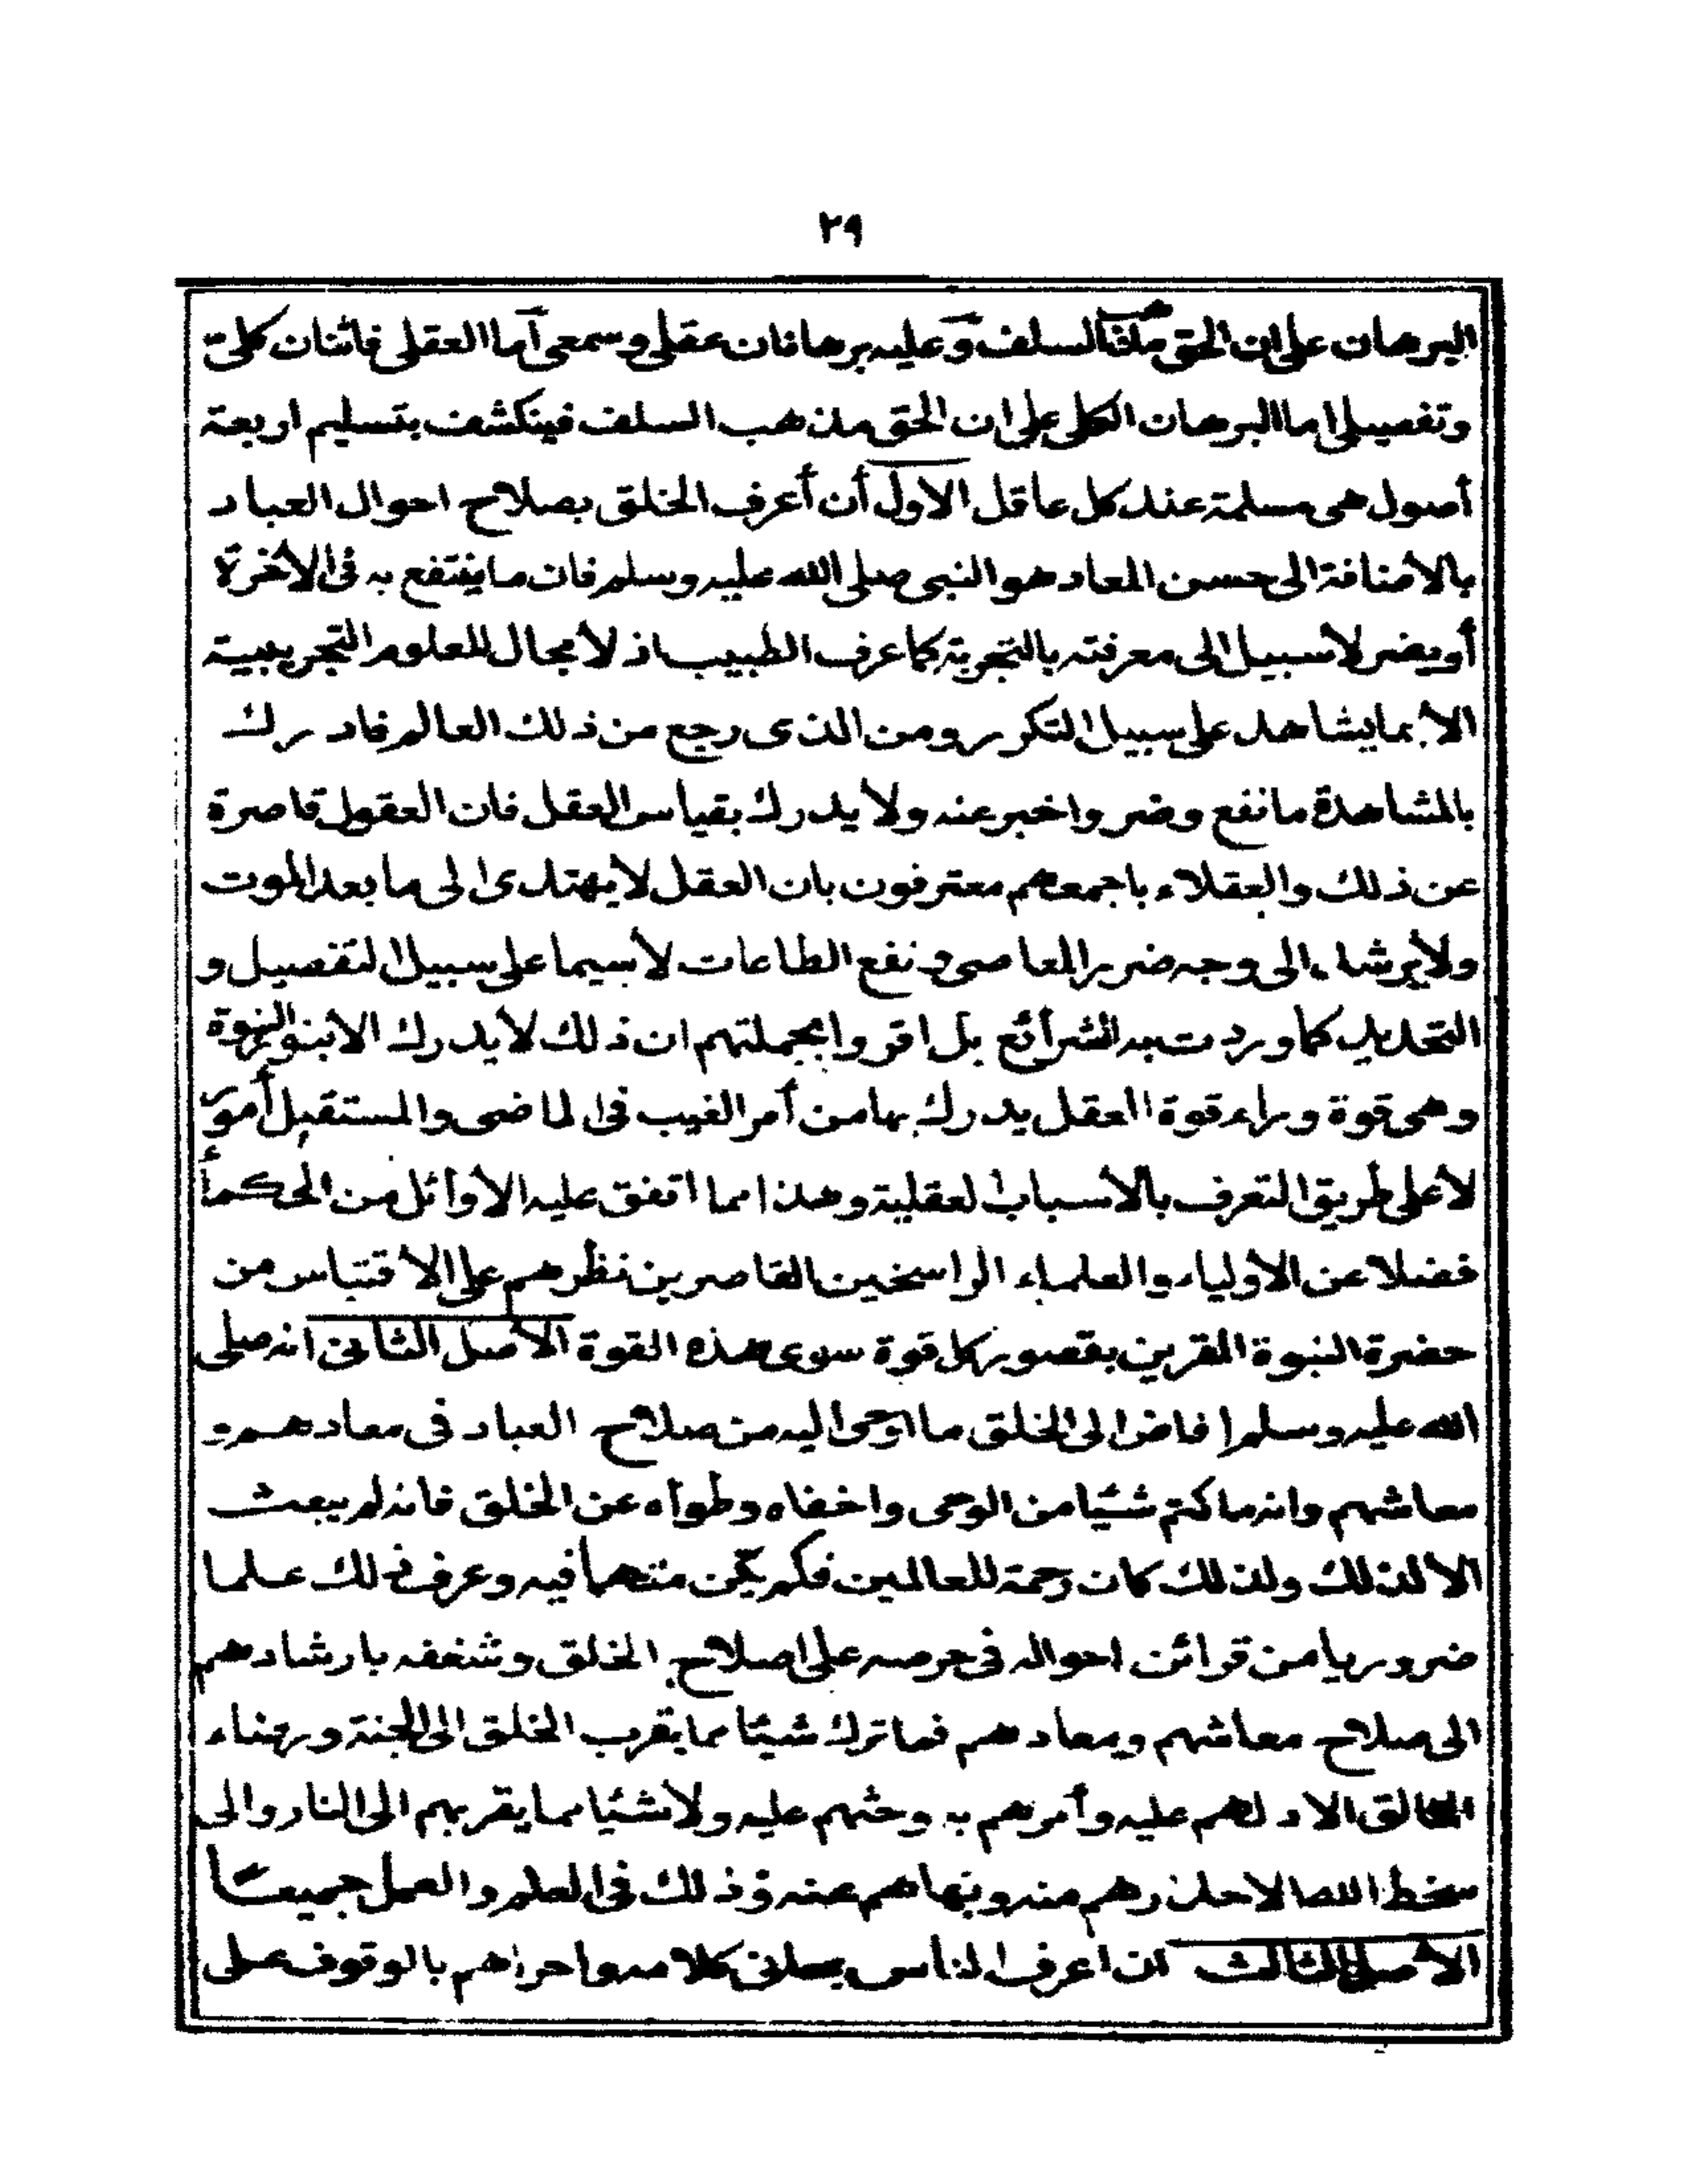 ٢٩
البرهان على ان الحق مذهب السلف وعليه برهانان عقلى وسمعى أما العقلى فاثنان كلىّ
وتفصيلى اما البرهان الكلى على ان الحق مذهب السلف فينكشف بتسليم اربعة
أصول هى مسلمة عند كل عاقل الاول أن أعرف الخلق بصلاح احوال العباد
بالاضافة الى حسن المعاد هو النبى صلى الله عليه وسلم فان ما ينتفع به فى الأخرة
أويضر لا سبيل الى معرفته بالتجربة كما عرف الطبيب اذ لا مجال للعلوم التجريبية
الا بما يشاهد على سبيل التكرر ومن الذى رجع من ذلك العالم فادرك
بالمشاهدة ما نفع وضر واخبر عنه ولا يدرك بقياس العقل فان العقول قاصرة
عن ذلك والعقلاء باجمعهم معترفون بان العقل لا يهتدى الى ما بعد الموت
ولا يرشد الى وجه ضرر المعاصى ونفع الطاعات لا سيما على سبيل التفصيل و
التحديد كما وردت به الشرائع بل اقروا بجملتهم ان ذلك لا يدرك الا بنور النبوة
وهى قوة وراء قوة العقل يدرك بها من أمر الغيب فى الماضى والمستقبل أمور
لا على طريق التعرف بالاسباب العقلية وهذا مما اتفق عليه الاوائل من الحكماء
فضلا عن الاولياء والعلماء الراسخين القاصرين نظرهم على الاقتباس من
حضرة النبوة المقرين بقصور كل قوة سوى هذه القوة الاصل الثانى انه صلى
الله عليه وسلم افاض الى الخلق ما اوحى اليه من صلاح العباد فى معادهم و
معاشهم وانه ما كتم شيئا من الوحى واخفاه وطواه عن الخلق فانه لم يبعث
الا لذلك ولذلك كان رحمة للعالمين فلم يكن متهما فيه وعرف ذلك علما
ضروريا من قرائن احواله فى حرصه على اصلاح الخلق وشغفه بارشادهم
الى صلاح معاشهم ومعادهم فما ترك شيئا مما يقرب الخلق الى الجنة ورضاء
الخالق الا دلهم عليه وأمرهم به وحثهم عليه ولا شيئا مما يقربهم الى النار والى
سخط الله الا حذرهم منه ونهاهم عنه وذلك فى العلم والعمل جميعا
الاصل الثالث ان اعرف الناس بمعانى كلامه واحراهم بالوقوف على